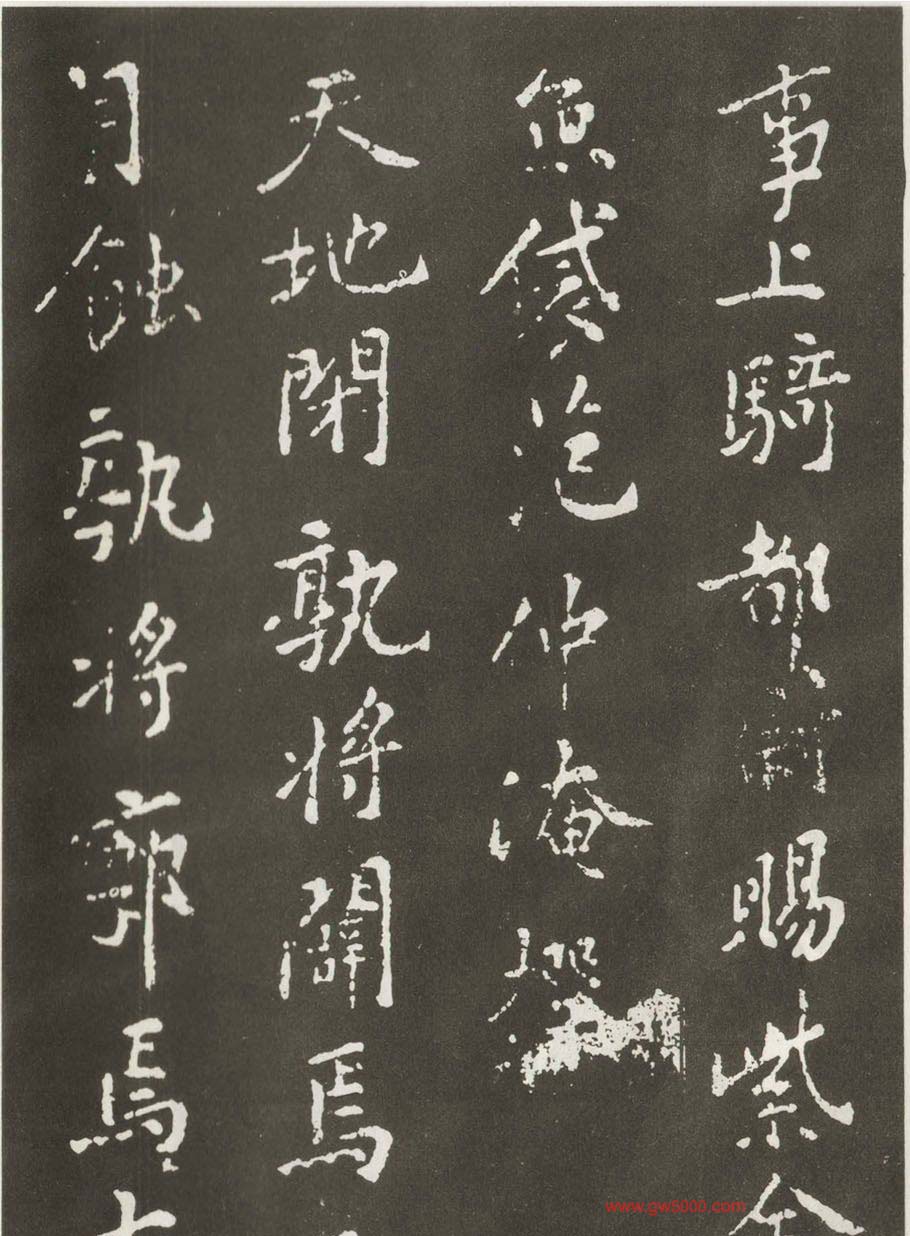 事上騎都尉賜紫金
魚袋范仲淹撰
天地閉孰將闢焉
月蝕孰將廓焉大
www.gw5000.com